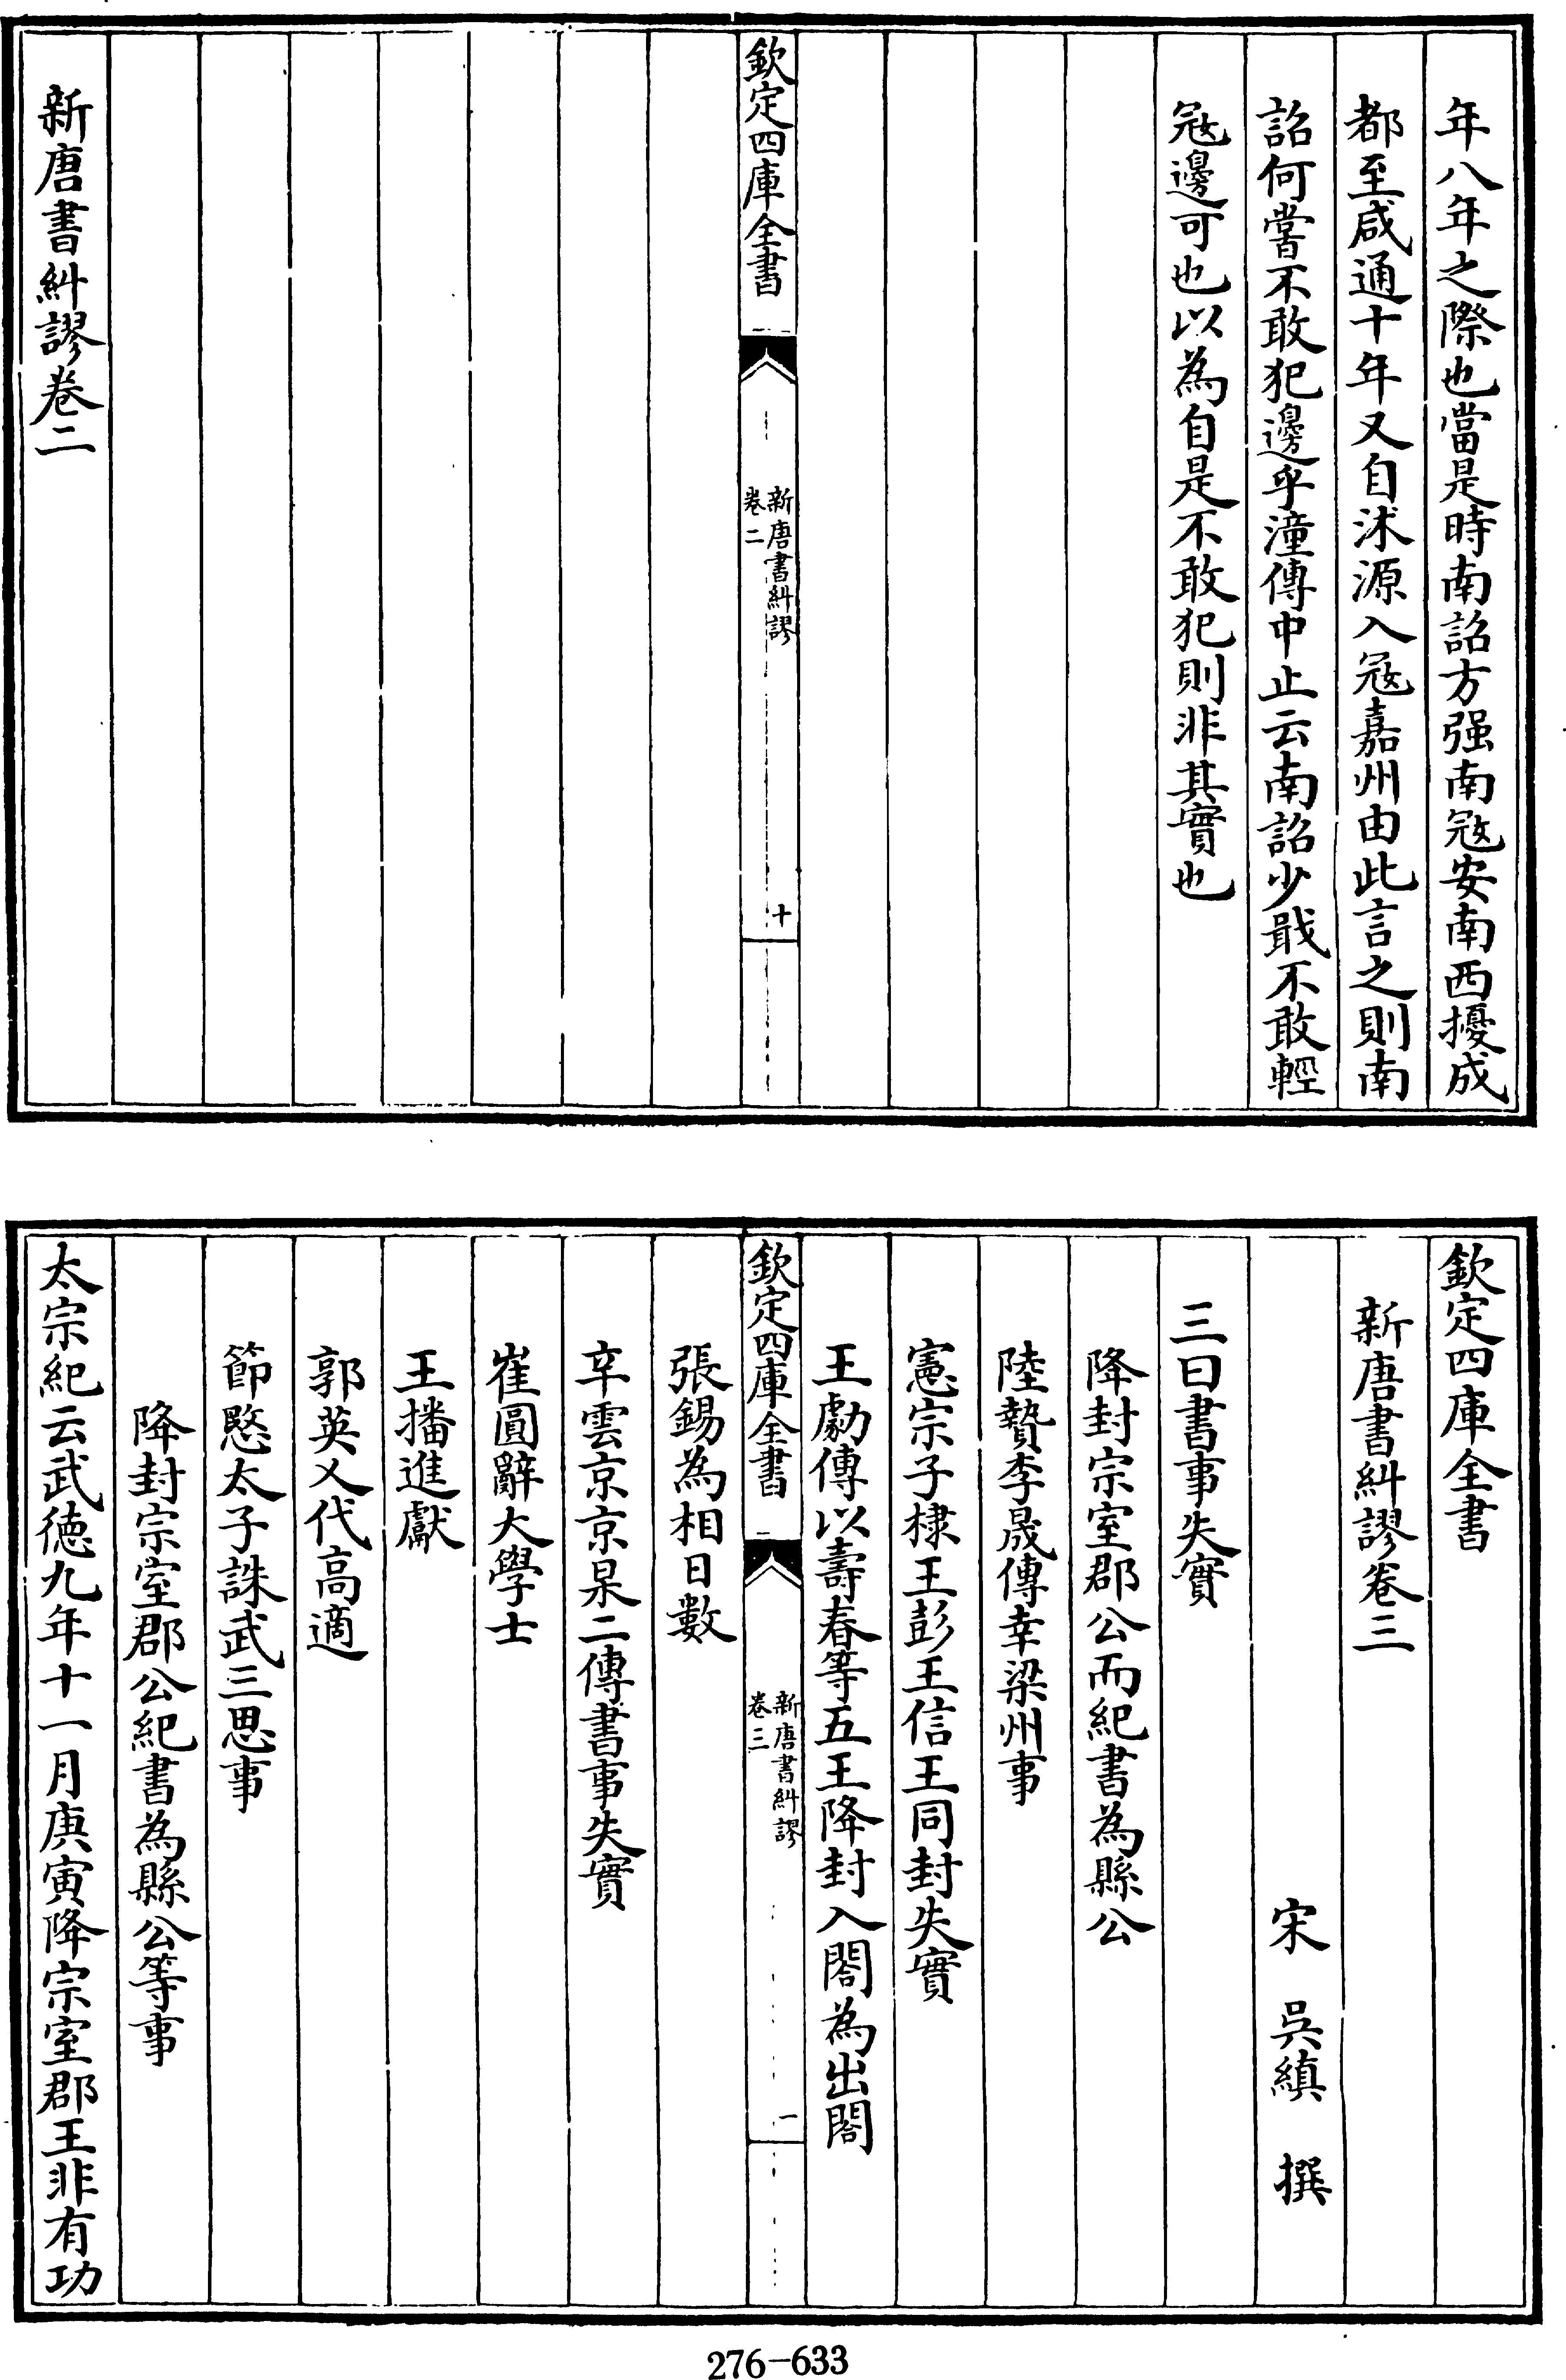 年八年之際也當是時南詔方强南寇安南西擾成
都至咸通十年又自沭源入寇嘉州由此言之則南
詔何嘗不敢犯邊乎潼傳中止云南詔少戢不敢輕
寇邊可也以為自是不敢犯則非其實也
欽定四庫全書
新唐書糾謬
卷二
十
新唐書糾謬卷二
欽定四庫全書
新唐書糾謬卷三
宋 吳縝 撰
三曰書事失實
降封宗室郡公而紀書為縣公
陸贄李晟傳幸梁州事
憲宗子棣王彭王信王同封失實
王勮傳以壽春等五王降封入閤為出閤
欽定四庫全書
新唐書糾謬
卷三
一
張錫為相日數
辛雲京京杲二傳書事失實
崔圓辭大學士
王播進獻
郭英乂代高適
節愍太子誅武三思事
降封宗室郡公紀書為縣公等事
太宗紀云武德九年十一月庚寅降宗室郡王非有功
276-633